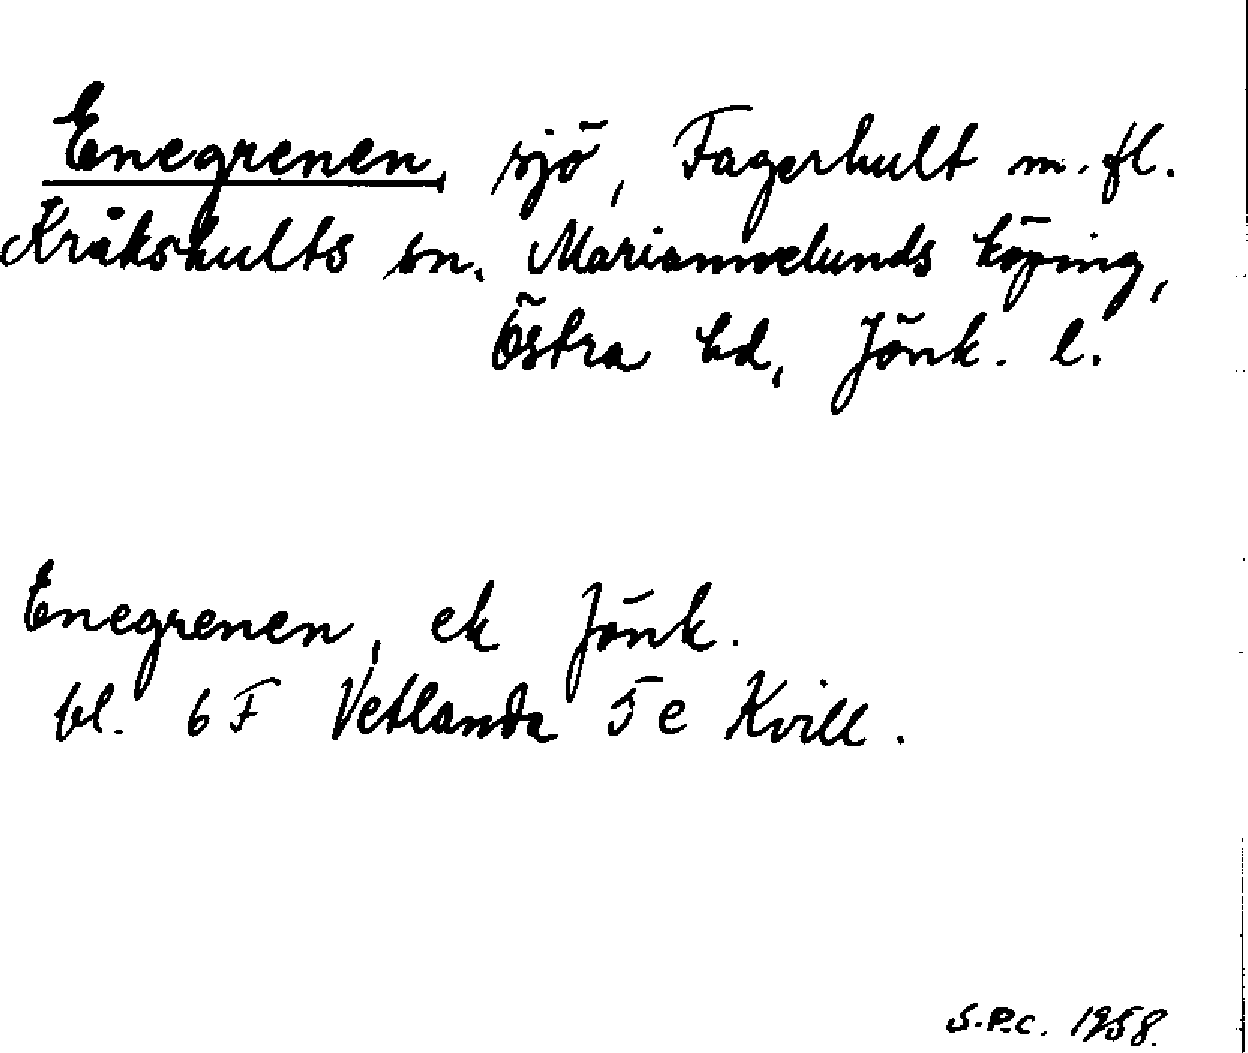 Enegrenen, sjö, Fagerhult m. fl.
Kråkshults sn. Mariannelunds köping,
Östra hd, Jönk. l.
Enegrenen, ek Jönk.
bl. 6 F Vetlanda 5 e Kvill.
S.P.C. 1958.